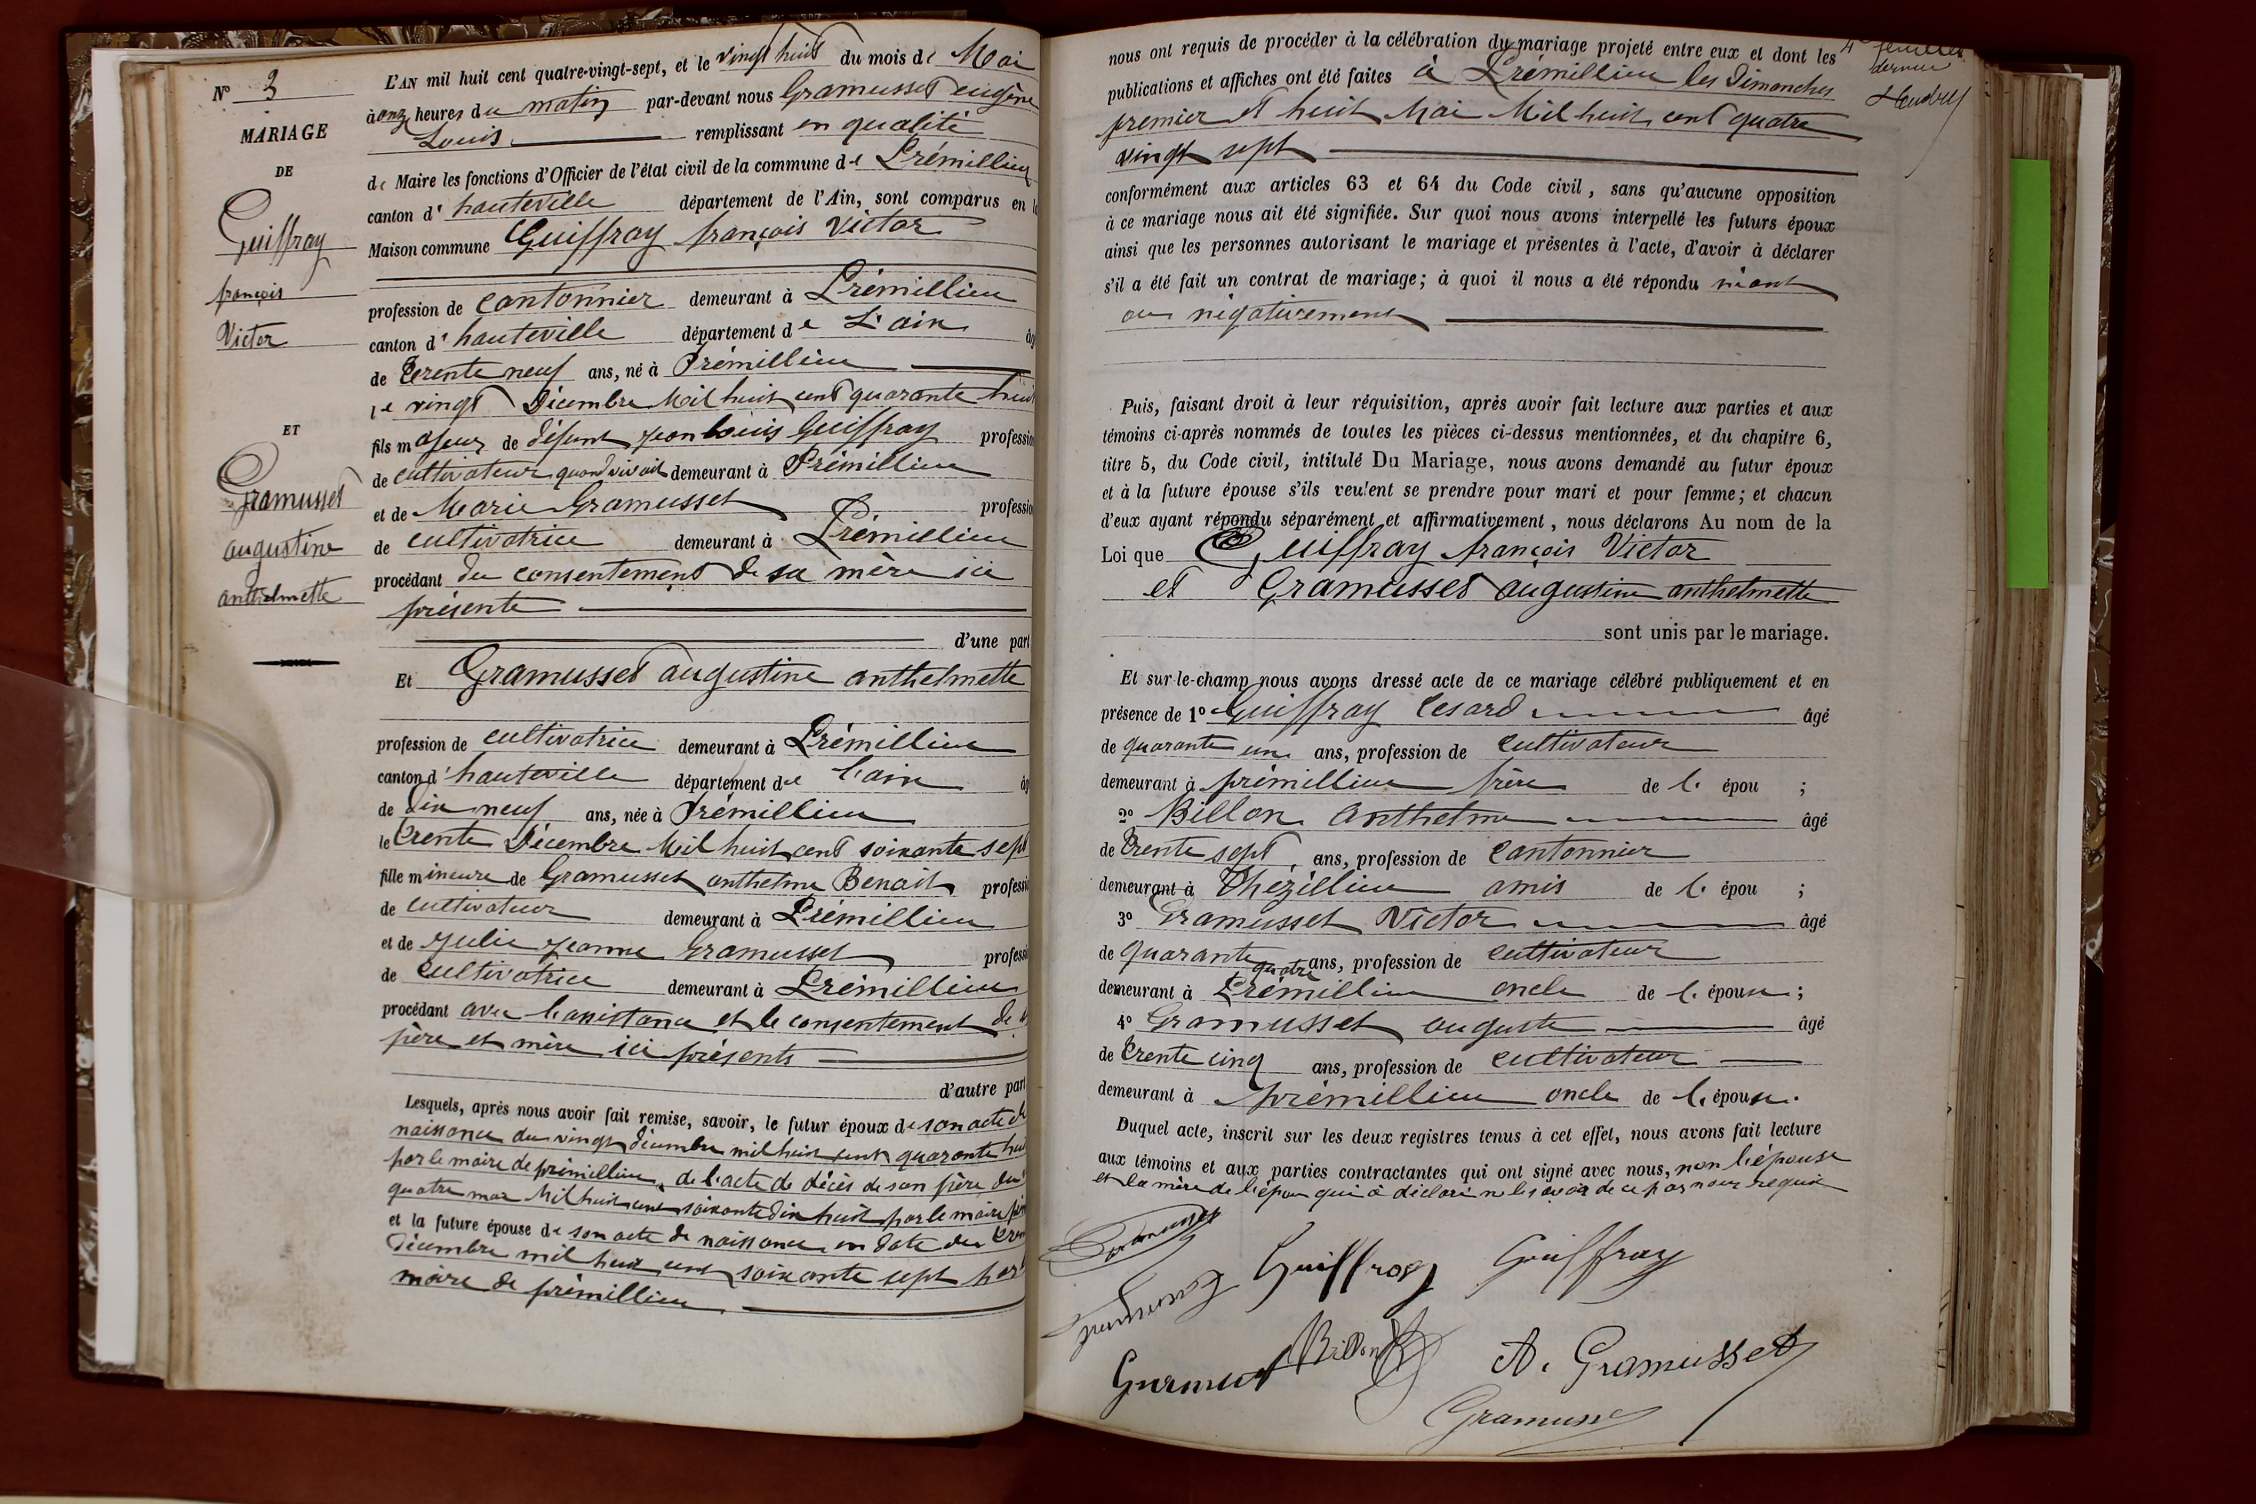 N° 3
MARIAGE
DE
Guiffray
françois
Victor
ET
Gramusset
augustine
anthelmette
L'AN mil huit cent quatre-vingt-sept, et le vingt huit du mois de Mai
à onze heures du matin par-devant nous Gramusset eugène
Louis remplissant en qualité
de Maire les fonctions d'Officier de l'état civil de la commune de Prémillieu
canton d' hauteville département de l'Ain, sont comparus en
Maison commune Guiffray françois Victor
profession de cantonnier demeurant à Prémillieu
canton d' hauteville département de L'ain
de trente neuf ans, né à Prémillieu
le vingt Décembre Mil huit cent quarante huit
fils majeur de défunt Jean Louis Guiffray profession
de cultivateur quand vivait demeurant à Prémillieu
et de Marie Gramusset profession
de cultivatrice demeurant à Prémillieu
procédant du consentement de sa mère ici
présente
d'une part
Et Gramusset augustine anthelmette
profession de cultivatrice demeurant à Prémillieu
canton d' hauteville département de l'ain
de dix neuf ans, née à Prémillieu
le trente Décembre Mil huit cent soixante sept
fille mineure de Gramusset anthelme Benoit professi
de cultivateur demeurant à Prémillieu
et de Julie Jeanne Gramusset professi
de cultivatrice demeurant à Prémillieu
procédant avec l'assistance et le consentement de
père et mère ici présents
d'autre part
Lesquels, après nous avoir fait remise, savoir, le futur époux de son acte de
naissance du vingt décembre mil huit cent quarante huit
par le maire de prémillieu, de l'acte de décès de son père du
quatre mar Mil huit cent soixante dix huit par le maire
et la future épouse de son acte de naissance en date du
décembre mil huit cent soixante sept par
maire de prémillieu
nous ont requis de procéder à la célébration du mariage projeté entre eux et dont les
publications et affiches ont été faites à Prémillieu les Dimanches
premier et huit Mai Mil huit cent quatre
vingt sept
4e feuillet
dernier
conformément aux articles 63 et 64 du Code civil, sans qu'aucune opposition
à ce mariage nous ait été signifiée. Sur quoi nous avons interpellé les futurs époux
ainsi que les personnes autorisant le mariage et présentes à l'acte, d'avoir à déclarer
s'il a été fait un contrat de mariage; à quoi il nous a été répondu néant
ou négativement
Puis, faisant droit à leur réquisition, après avoir fait lecture aux parties et aux
témoins ci-après nommés de toutes les pièces ci-dessus mentionnées, et du chapitre 6,
titre 5, du Code civil, intitulé Du Mariage, nous avons demandé au futur époux
et à la future épouse s'ils veulent se prendre pour mari et pour femme; et chacun
d'eux ayant répondu séparément et affirmativement, nous déclarons Au nom de la
Loi que Guiffray françois Victor
et Gramusset augustine anthelmette
sont unis par le mariage.
Et sur-le-champ nous avons dressé acte de ce mariage célébré publiquement et en
présence de 1° Guiffray Cesard âgé
de quarante un ans, profession de cultivateur
demeurant à prémillieu frère de l' épou ;
2° Billon Anthelme âgé
de trente sept ans, profession de cantonnier
demeurant à Thézillieu amis de l' épou ;
3° Gramusset Victor âgé
de quarante quatre ans, profession de cultivateur
demeurant à Prémillieu oncle de l' épouse ;
4° Gramusset auguste âgé
de trente cinq ans, profession de cultivateur
demeurant à prémillieu oncle de l' épouse.
Duquel acte, inscrit sur les deux registres tenus à cet effet, nous avons fait lecture
aux témoins et aux parties contractantes qui ont signé avec nous, non l'épouse
et la mère de l'époux qui a déclaré ne les avoir de ce par nous requis
Gramusset
Guiffray Guiffray
Billon
A. Gramusset
Gramusse